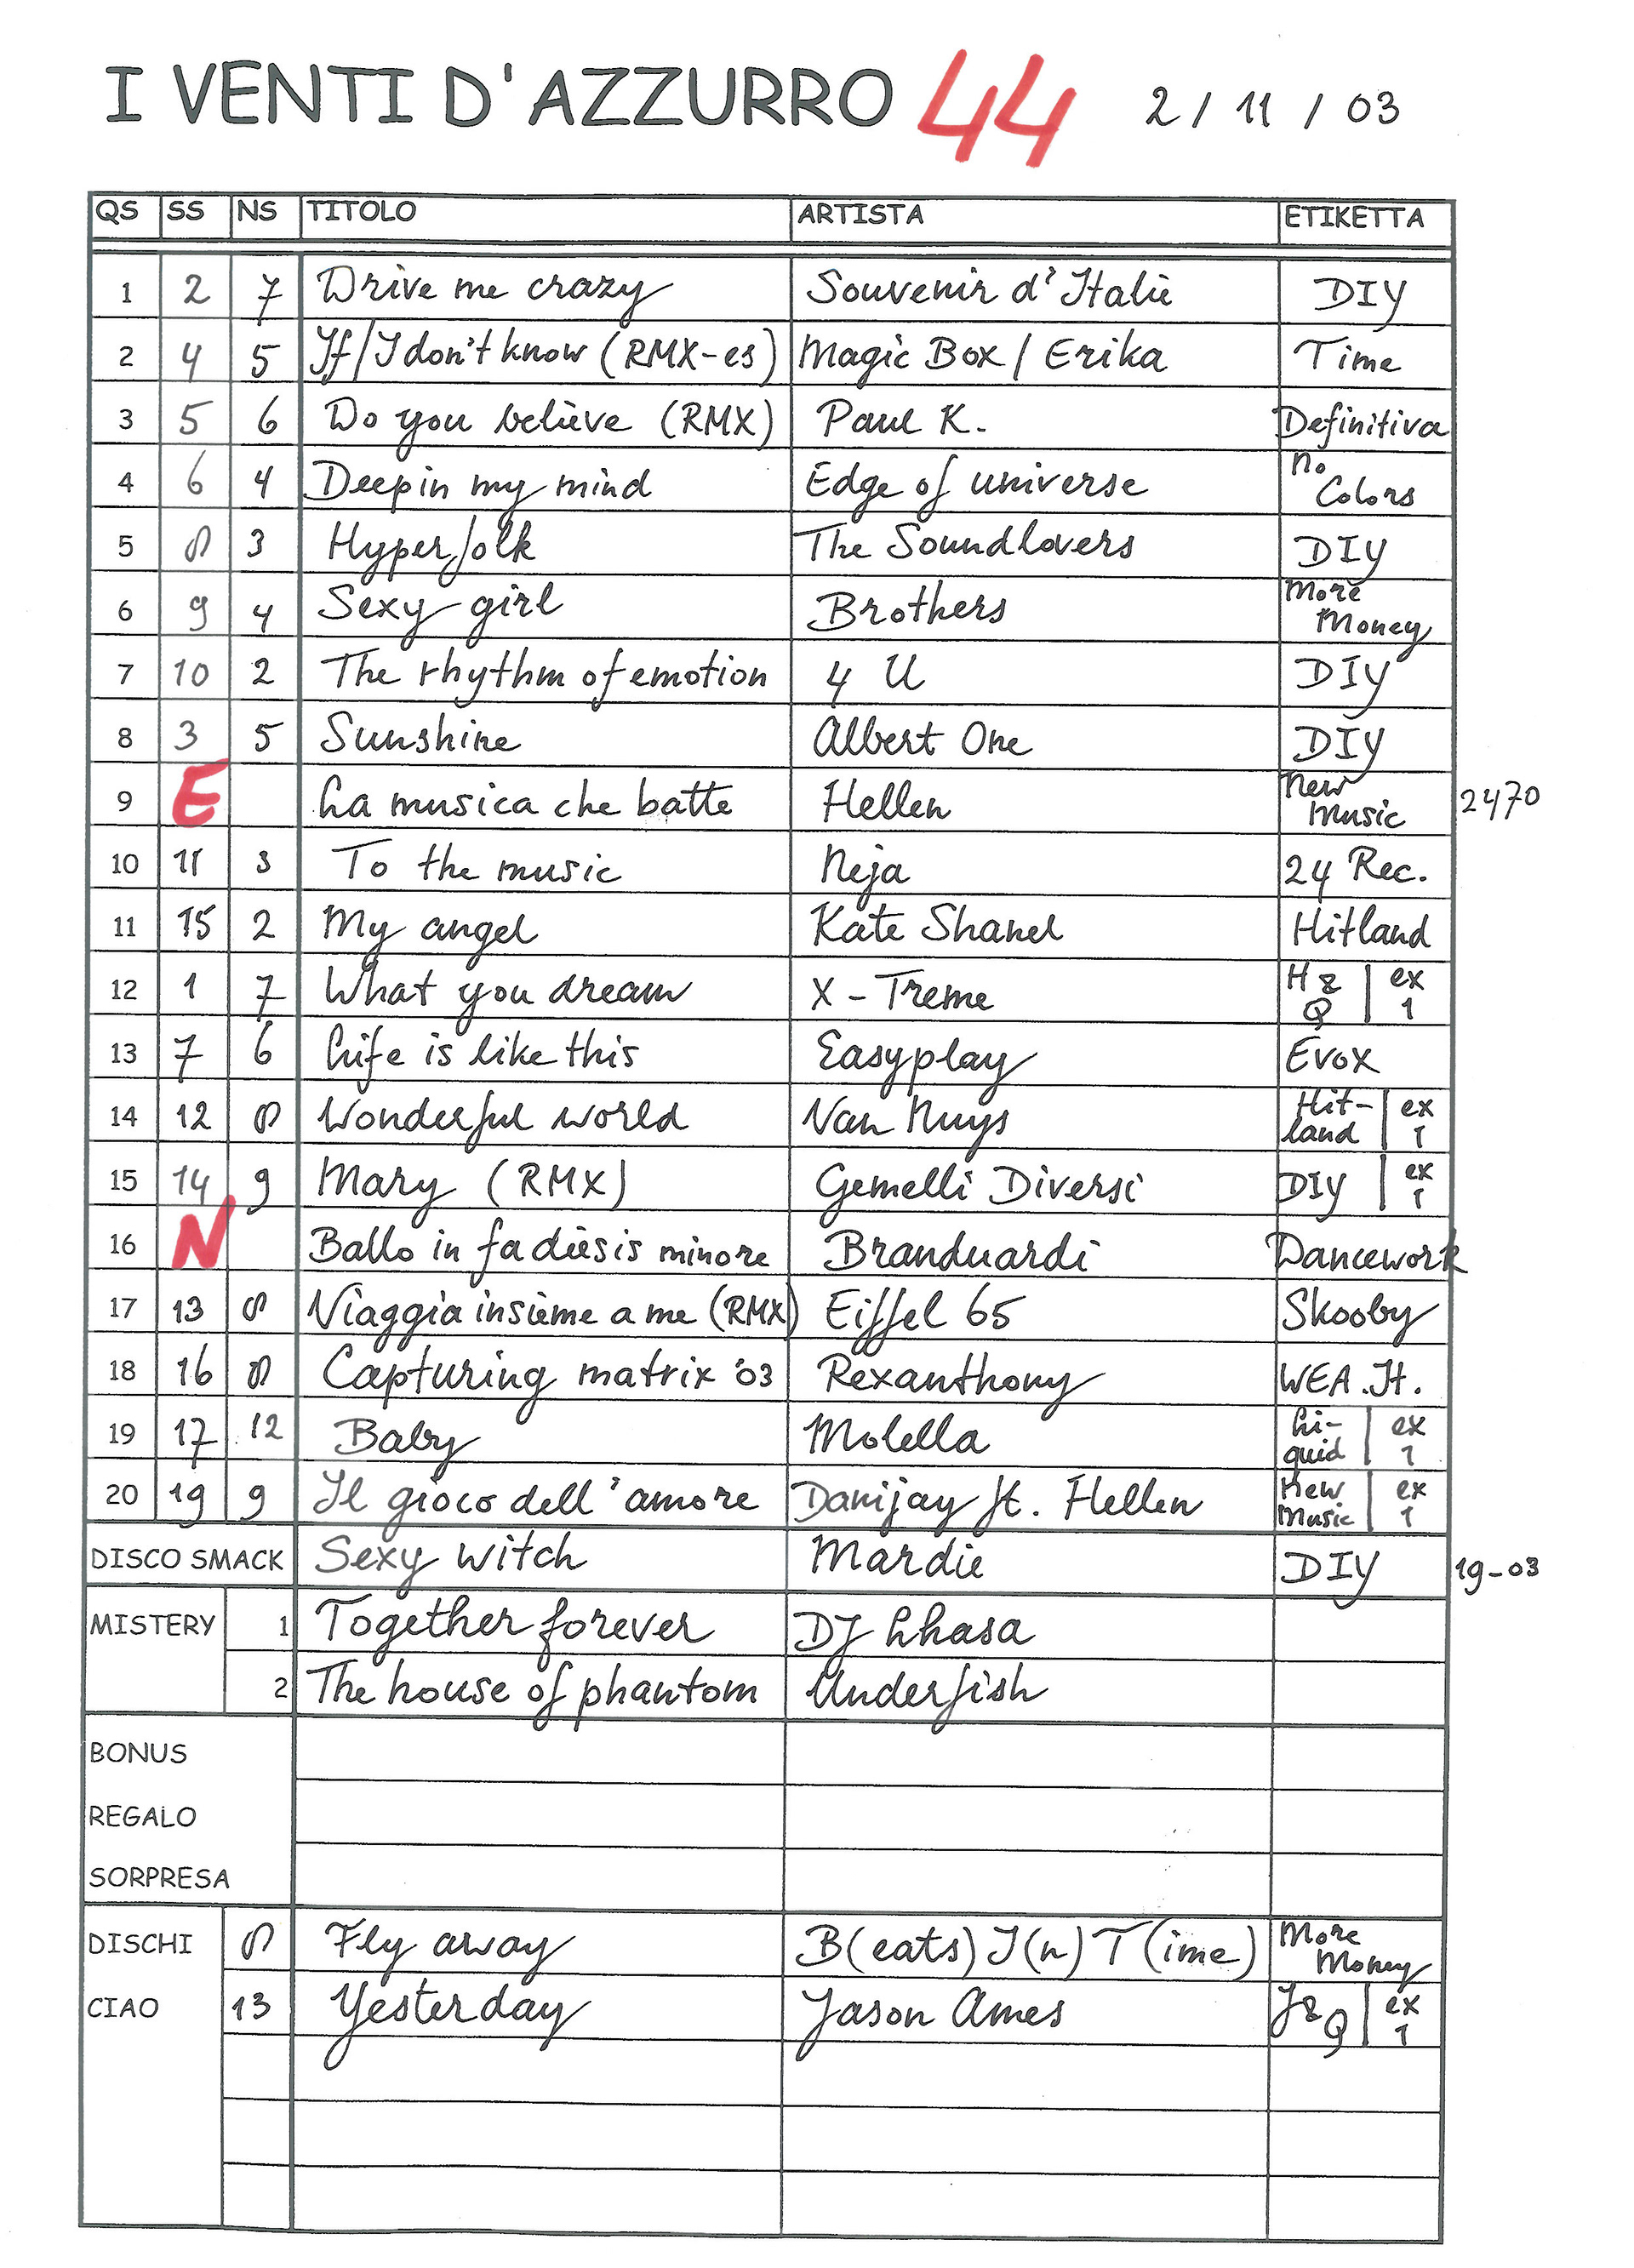 I VENTI D'AZZURRO 44 2/11/03
QS SS NS TITOLO ARTISTA ETIKETTA
1 2 7 Drive me crazy Souvenir d'Italie DIY
2 4 5 If/I don't know (RMX-es) Magic Box / Erika Time
3 5 6 Do you believe (RMX) Paul K. Definitiva
4 6 4 Deep in my mind Edge of universe no Colors
5 8 3 Hyperfolk The Soundlovers DIY
6 9 4 Sexy girl Brothers More Money
7 10 2 The rhythm of emotion 4 U DIY
8 3 5 Sunshine Albert One DIY
9 E La musica che batte Hellen New Music 2470
10 11 3 To the music Neja 24 Rec.
11 15 2 My angel Kate Shanel Hitland
12 1 7 What you dream X-Treme H & Q | ex 1
13 7 6 Life is like this Easyplay Evox
14 12 8 Wonderful world Van Nuys Hit-land | ex 1
15 14 9 Mary (RMX) Gemelli Diversi DIY | ex 1
16 N Ballo in fa diesis minore Branduardi Dancework
17 13 8 Viaggia insieme a me (RMX) Eiffel 65 Skooby
18 16 8 Capturing matrix '03 Rexanthony WEA.It.
19 17 12 Baby Molella Li-quid | ex 1
20 19 9 Il gioco dell'amore Danijay ft. Hellen New Music | ex 1
DISCO SMACK Sexy witch Mardie DIY 19-03
MISTERY 1 Together forever DJ Lhasa
2 The house of phantom Underfish
BONUS
REGALO
SORPRESA
DISCHI 8 Fly away B(eats) I(n) T(ime) More Money
CIAO 13 Yesterday Jason Ames J&Q | ex 1